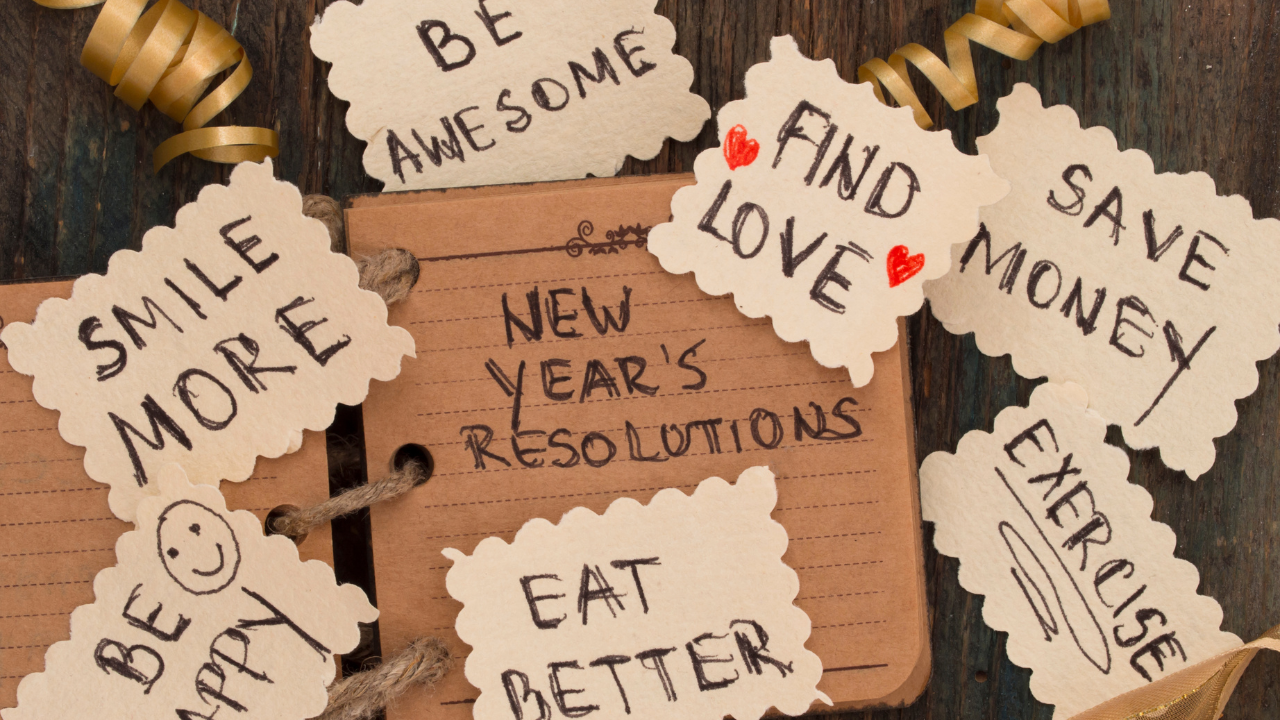 BE
AWESOME
FIND
LOVE
SAVE
MONEY
SMILE
MORE
NEW
YEAR'S
RESOLUTIONS
EXERCISE
BE
APPY
EAT
BETTER